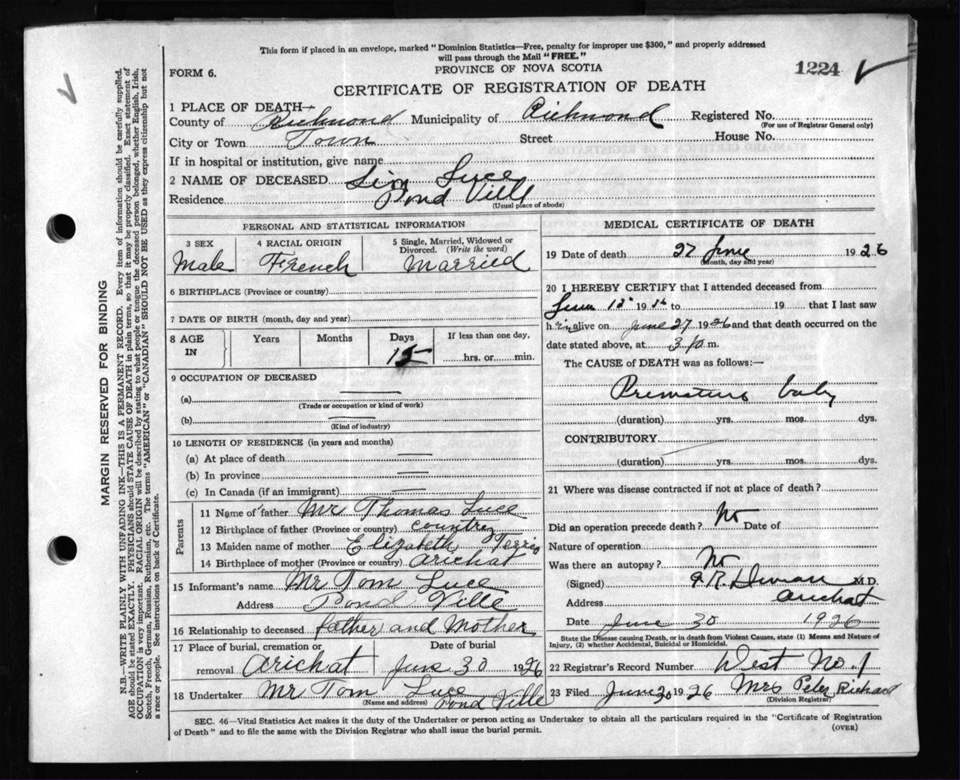 This form if placed in an envelope, marked "Dominion Statistics—Free, penalty for improper use $300," and properly addressed
will pass through the Mail "FREE."
PROVINCE OF NOVA SCOTIA
1224
FORM 6.
CERTIFICATE OF REGISTRATION OF DEATH
1 PLACE OF DEATH—
County of Richmond Municipality of Richmond Registered No.
(For use of Registrar General only)
City or Town Town Street House No.
If in hospital or institution, give name
2 NAME OF DECEASED Luce
Residence Pond Ville
(Usual place of abode)
PERSONAL AND STATISTICAL INFORMATION
3 SEX 4 RACIAL ORIGIN 5 Single, Married, Widowed or Divorced. (Write the word)
Male French Married
6 BIRTHPLACE (Province or country)
7 DATE OF BIRTH (month, day and year)
8 AGE IN Years Months Days If less than one day,
15 hrs. or min.
9 OCCUPATION OF DECEASED
(a)
(Trade or occupation or kind of work)
(b)
(Kind of industry)
10 LENGTH OF RESIDENCE (in years and months)
(a) At place of death
(b) In province
(c) In Canada (if an immigrant)
Parents
11 Name of father Mr Thomas Luce
12 Birthplace of father (Province or country) country
13 Maiden name of mother Elizabeth Terrio
14 Birthplace of mother (Province or country) Arichat
15 Informant's name Mr Tom Luce
Address Pond Ville
16 Relationship to deceased father and Mother
17 Place of burial, cremation or Date of burial
removal Arichat June 30 1926
18 Undertaker Mr Tom Luce
(Name and address) Pond Ville
MEDICAL CERTIFICATE OF DEATH
19 Date of death 27 June 1926
(Month, day and year)
20 I HEREBY CERTIFY that I attended deceased from
to 19 that I last saw
h alive on June 27 1926 and that death occurred on
date stated above, at 3 p m.
The CAUSE of DEATH was as follows:—
Premature baby
(duration) yrs. mos. dys.
CONTRIBUTORY
(duration) yrs. mos. dys.
21 Where was disease contracted if not at place of death?
Did an operation precede death? No Date of
Nature of operation
Was there an autopsy? No
(Signed) M.D.
Address Arichat
Date June 30 1926
State the Disease causing Death, or in death from Violent Causes, state (1) Means and Nature of
Injury, (2) whether Accidental, Suicidal or Homicidal.
22 Registrar's Record Number West No. 1
23 Filed June 30 1926 Mrs Peter Richard
(Division Registrar)
SEC. 46—Vital Statistics Act makes it the duty of the Undertaker or person acting as Undertaker to obtain all the particulars required in the "Certificate of Registration
of Death" and to file the same with the Division Registrar who shall issue the burial permit.
(OVER)
MARGIN RESERVED FOR BINDING
N.B.—WRITE PLAINLY WITH UNFADING INK—THIS IS A PERMANENT RECORD. Every item of information should be carefully supplied.
AGE should be stated EXACTLY. PHYSICIANS should STATE CAUSE OF DEATH in plain terms, so that it may be properly classified. Exact statement of
OCCUPATION is very important. RACIAL ORIGIN will be described by stating to what people or tongue the deceased person belonged, whether English, Irish,
Scotch, French, German, Russian, Ruthenian, etc. The terms "AMERICAN" or "CANADIAN" SHOULD NOT BE USED as they express citizenship but not
a race or people. See instructions on back of Certificate.